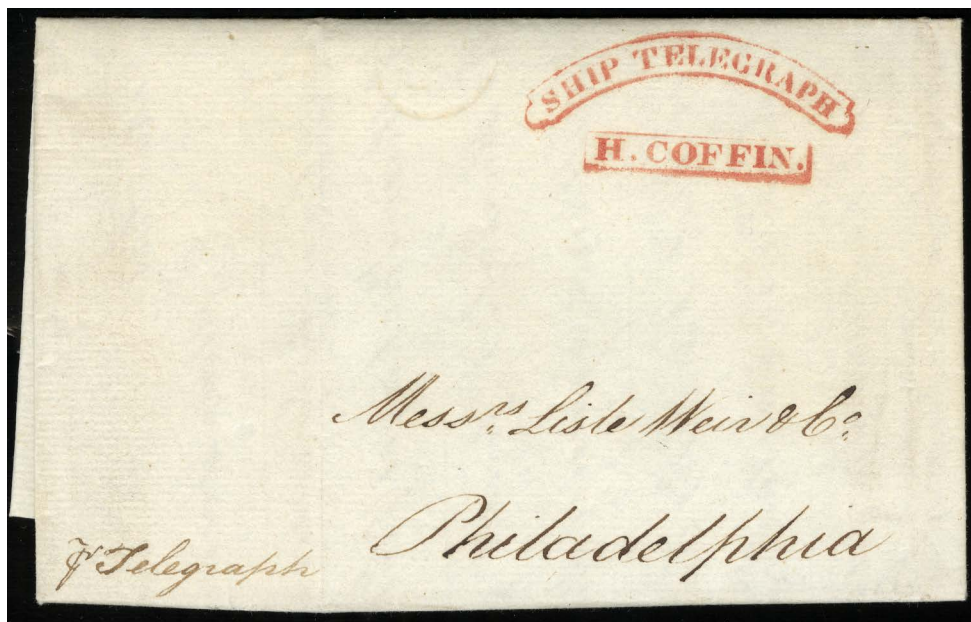 SHIP TELEGRAPH
H. COFFIN.
Messrs. Lisle Weir & Co.
Philadelphia
pr Telegraph